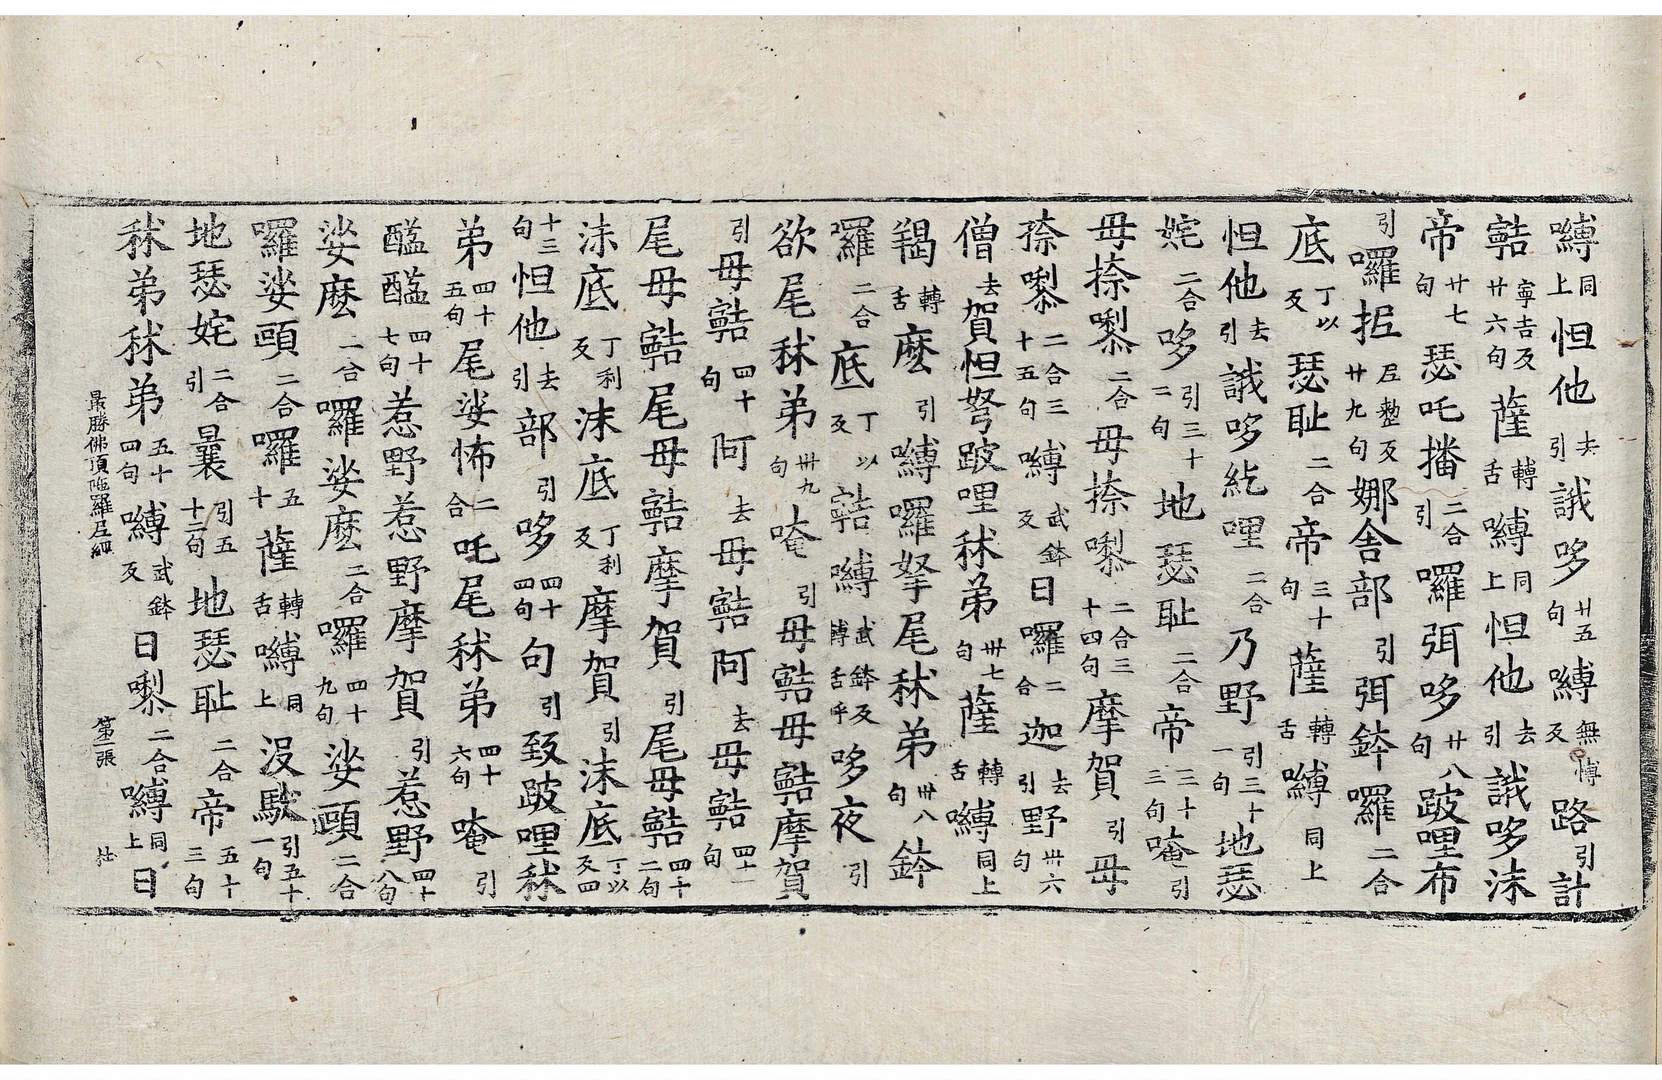 嚩同上怛他去引誐哆廿五句嚩無愽反路引計
𪉜寧吉反廿六句薩轉舌嚩同上怛他去引誐哆沬
帝廿七句瑟吒播二合引囉弭哆廿八句跛哩布
引囉抳尼整反廿九句娜舍部引弭鉢囉二合
底丁以反瑟恥二合帝三十句薩轉舌嚩同上
怛他去引誐哆紇哩二合乃野引三十一句地瑟
姹二合哆引三十二句地瑟恥二合帝三十三句唵引
毋捺嚟二合毋捺嚟二合三十四句摩賀引毋
捺嚟二合三十五句嚩武鉢反日囉二合迦去引野丗六句
僧去賀怛弩跛哩秫弟丗七句薩轉舌嚩同上
羯轉舌麼引嚩囉拏尾秫弟丗八句鉢
囉二合底丁以反𪉜嚩武鉢反轉舌呼哆夜引
欲尾秫弟丗九句唵引毋𪉜毋𪉜摩賀
引毋𪉜四十句阿去毋𪉜阿去毋𪉜四十一句
尾毋𪉜尾毋𪉜摩賀引尾毋𪉜四十二句
沬底丁利反沬底丁利反摩賀引沬底丁以反四
十三句怛他去引部引哆四十四句句引致跛哩秫
弟四十五句尾娑怖二合吒尾秫弟四十六句唵引
醯醯四十七句惹野惹野摩賀引惹野四十八句
娑麼二合囉娑麼二合囉四十九句娑頗二合
囉娑頗二合囉五十薩轉舌嚩同上沒馱引五十一句
地瑟姹二合引曩引五十二句地瑟恥二合帝五十三句
秫弟秫弟五十四句嚩武鉢反日嚟二合嚩同上日
最勝佛頂陁羅尼經 第二張